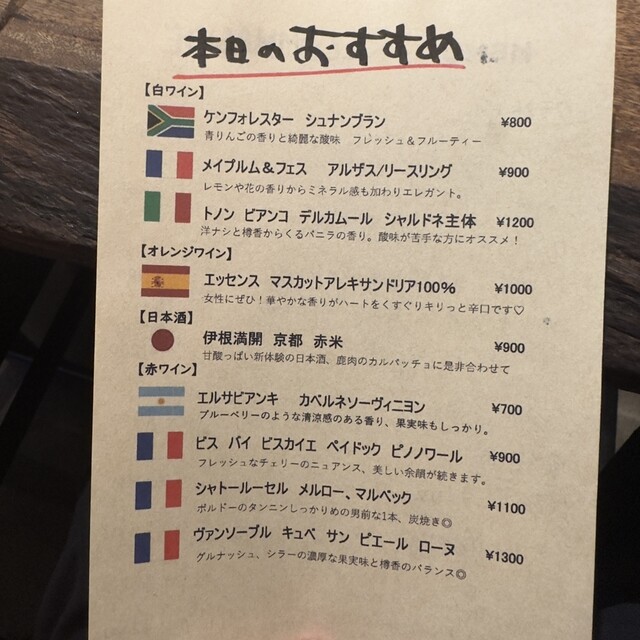 本日のおすすめ
【白ワイン】
ケンフォレスター シュナンブラン ¥800
青りんごの香りと綺麗な酸味 フレッシュ＆フルーティー
メイプルム＆フェス アルザス/リースリング ¥900
レモンや花の香りからミネラル感も加わりエレガント。
トノン ビアンコ デルカムール シャルドネ主体 ¥1200
洋ナシと樽香からくるバニラの香り。酸味が苦手な方にオススメ！
【オレンジワイン】
エッセンス マスカットアレキサンドリア100% ¥1000
女性にぜひ！華やかな香りがハートをくすぐりキリっと辛口です♡
【日本酒】
伊根満開 京都 赤米 ¥900
甘酸っぱい新体験の日本酒、鹿肉のカルパッチョに是非合わせて
【赤ワイン】
エルサビアンキ カベルネソーヴィニヨン ¥700
ブルーベリーのような清涼感のある香り、果実味もしっかり。
ビス バイ ビスカイエ ペイドック ピノノワール ¥900
フレッシュなチェリーのニュアンス、美しい余韻が続きます。
シャトールーセル メルロー、マルベック ¥1100
ボルドーのタンニンしっかりめの男前な1本、炭焼き◎
ヴァンソーブル キュベ サン ピエール ローヌ ¥1300
グルナッシュ、シラーの濃厚な果実味と樽香のバランス◎